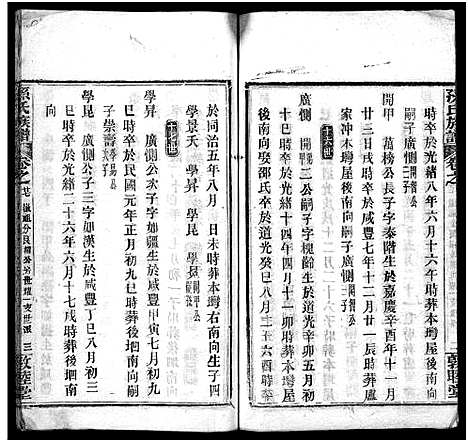 時卒於光緒八年六月十六年時葬本塆屋後南向
嗣子廣惻
開甲 萬榜公長子字泰階生於嘉慶辛酉年十一月
廿三日戌時卒於咸豐七年十二月廿一辰時葬廬
家冲本塆屋後南向
十六世
廣惻 開甲公嗣子字槐餘生於道光辛卯五月初
一日巳時卒於光緒十四年四月初十巳時葬本塆屋後
南向娶邵氏生於道光癸巳八月二十六酉時
於同治五年八月 日未時葬本塆右南向生子四
學景夭 學昇 學昆 學崑
十七世
學昇 廣惻公次子字如疆生於咸豐甲寅七月初九
巳時卒於民國元年正月初九巳時葬後垇南向嗣
子崇壽
學昆 廣惻公子三字如漢生於咸豐丁巳八月初三
巳時卒於光緒二十六年六月十七戌時葬後垇南
孫氏族譜
卷之廿
三
敦睦堂